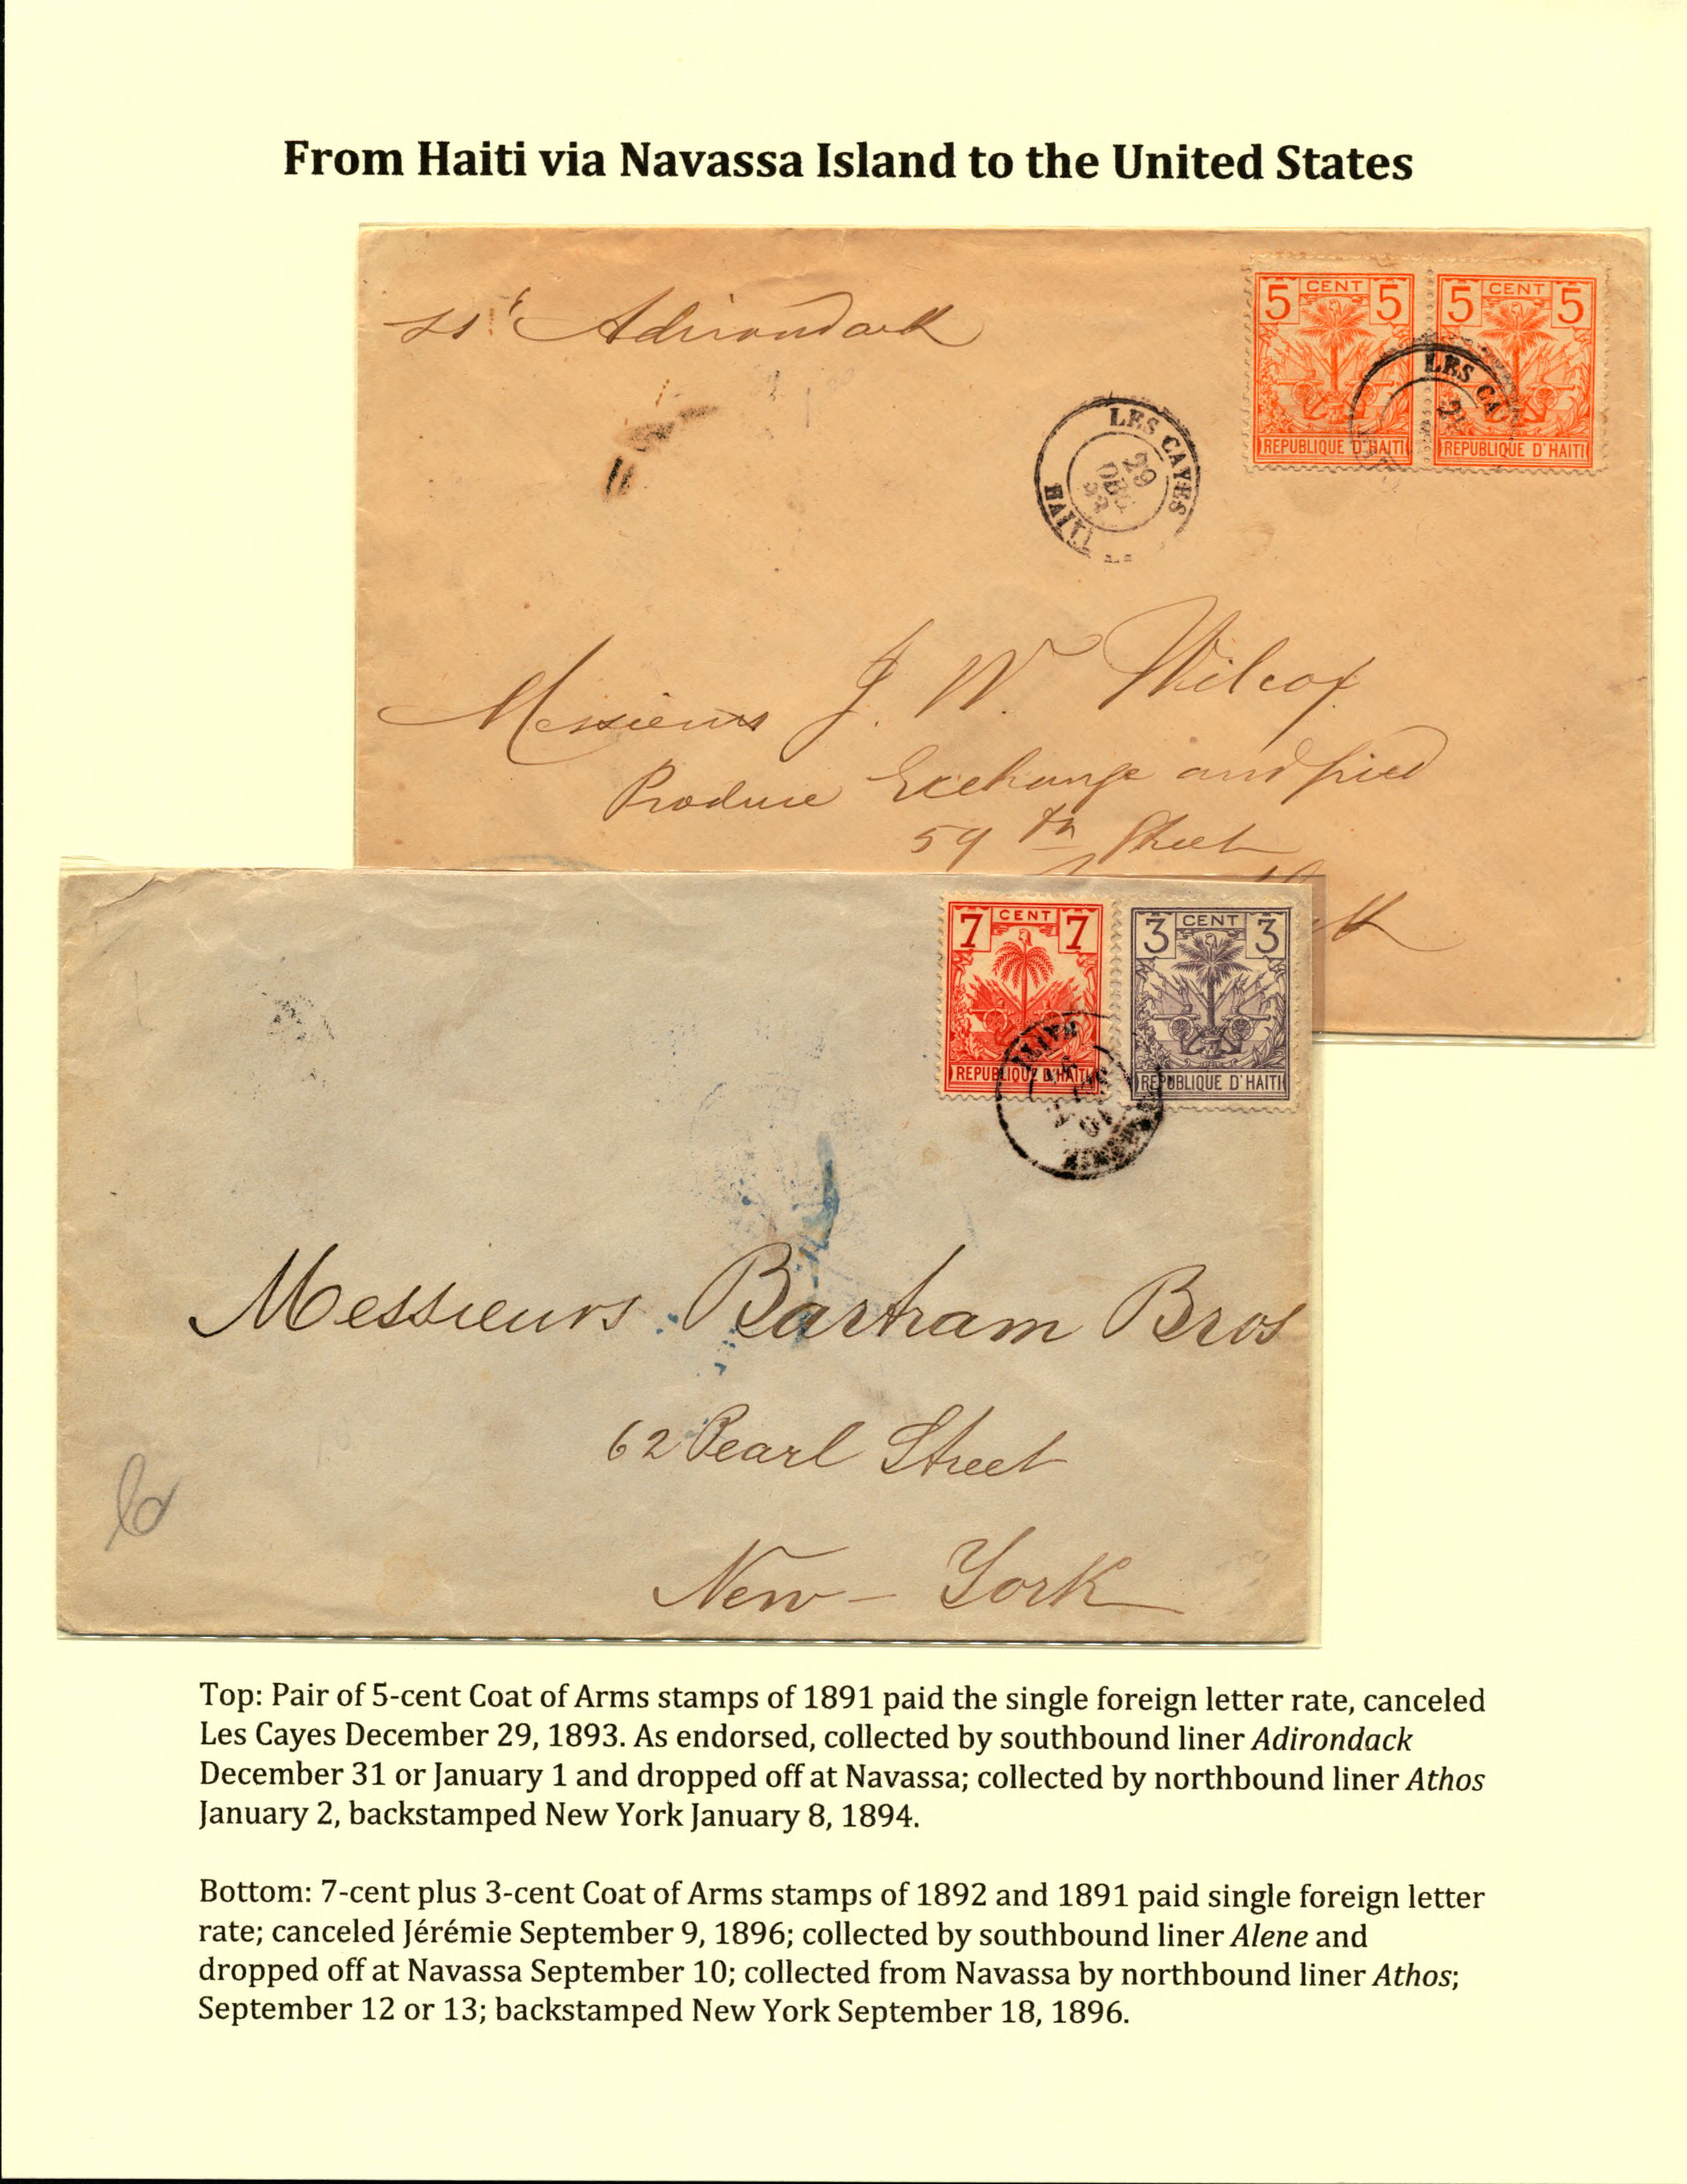 From Haiti via Navassa Island to the United States
ss: Adirondack
5 CENT 5
REPUBLIQUE D'HAITI
5 CENT 5
REPUBLIQUE D'HAITI
LES CA
LES CAYES
29
DEC
93
HAITI
Messieurs J. W. Wilcox
Produce Exchange and
59 th Street
7 CENT 7
REPUBLIQUE D'HAITI
3 CENT 3
REPUBLIQUE D'HAITI
HAITI
Messieurs Bartram Bros
62 Pearl Street
New-York
Top: Pair of 5-cent Coat of Arms stamps of 1891 paid the single foreign letter rate, canceled
Les Cayes December 29, 1893. As endorsed, collected by southbound liner Adirondack
December 31 or January 1 and dropped off at Navassa; collected by northbound liner Athos
January 2, backstamped New York January 8, 1894.
Bottom: 7-cent plus 3-cent Coat of Arms stamps of 1892 and 1891 paid single foreign letter
rate; canceled Jérémie September 9, 1896; collected by southbound liner Alene and
dropped off at Navassa September 10; collected from Navassa by northbound liner Athos;
September 12 or 13; backstamped New York September 18, 1896.